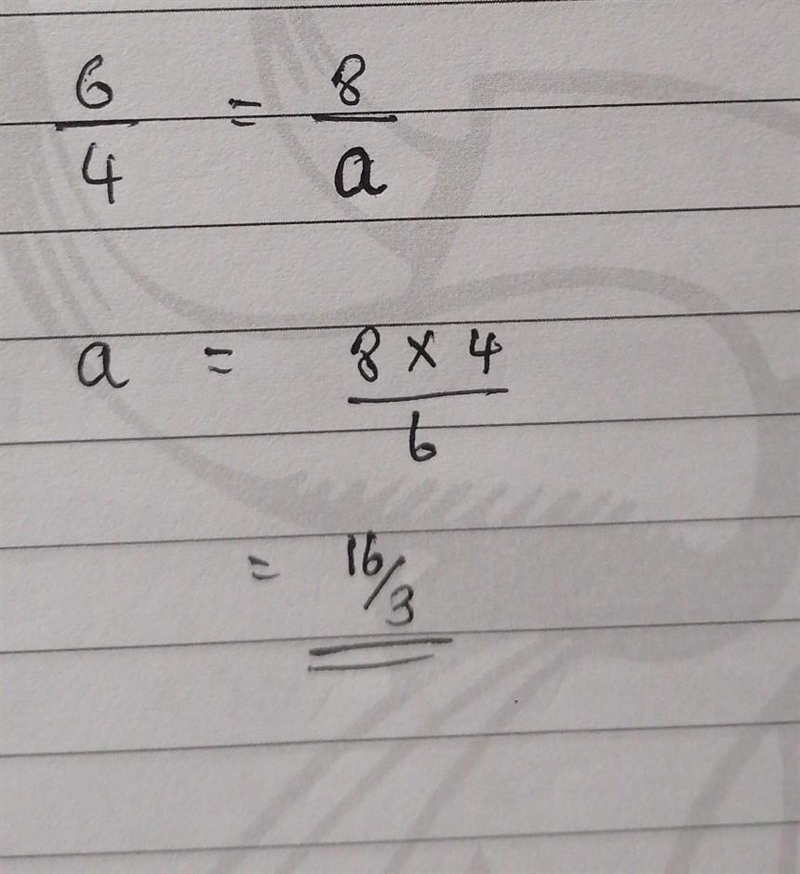 6/4 = 8/a
a = 8 × 4/6
= 16/3